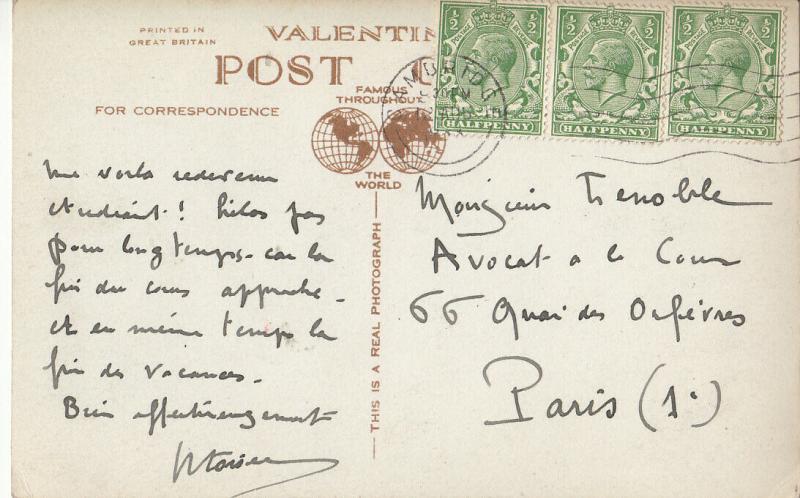 PRINTED IN
GREAT BRITAIN
VALENTIN
POST C
FAMOUS
THROUGHOUT
THE
WORLD
FOR CORRESPONDENCE
THIS IS A REAL PHOTOGRAPH
½ ½
POSTAGE REVENUE
HALFPENNY
½ ½
POSTAGE REVENUE
HALFPENNY
½ ½
POSTAGE REVENUE
HALFPENNY
me voila redevenu
etudiant! hélas pas
pour longtemps - car la
fin du cours approche -
et en même temps la
fin des vacances -
Bien affectueusement
Monsieur Grenoble
Avocat a la Cour
66 Quai des Orfèvres
Paris (1°)